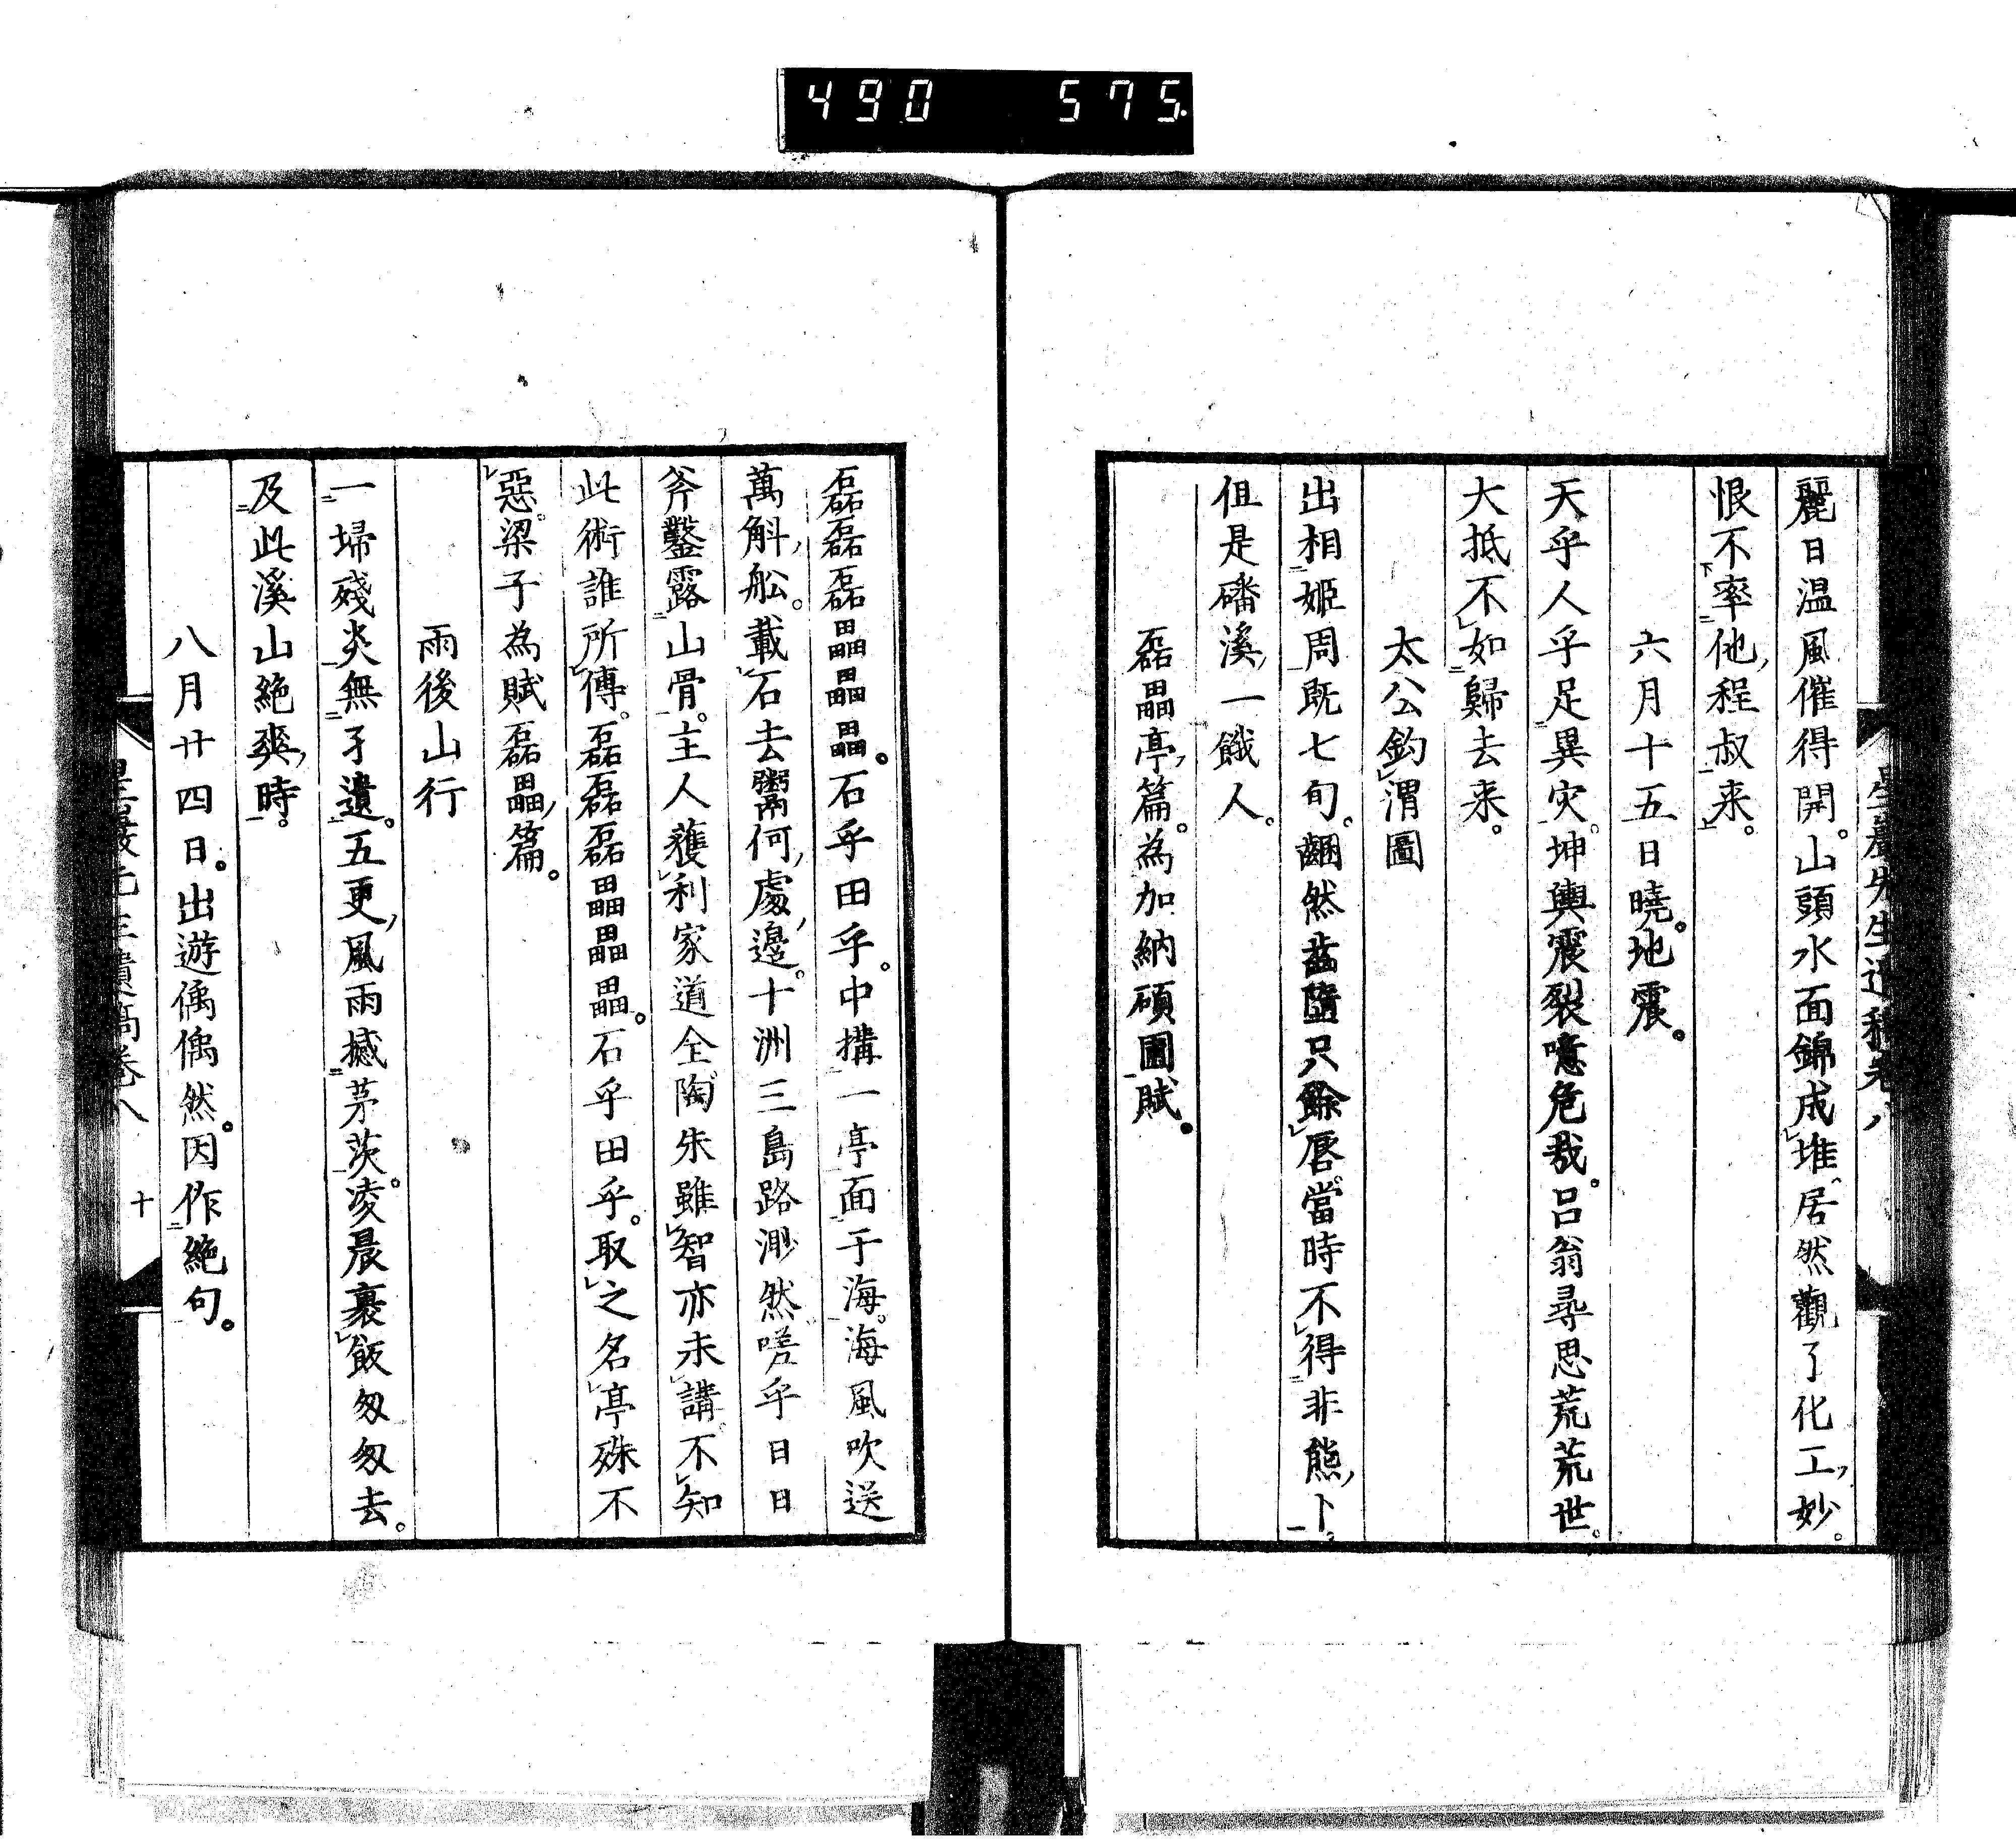 490 575.
麗日温風催得開。山頭水面錦成堆。居然觀了化工妙。
恨不率他程叔来。
六月十五日曉。地震。
天乎人乎足異灾。坤輿震裂噫危哉。呂翁尋思荒荒世。
大抵不如歸去来。
太公釣渭圖
出相姬周既七旬。齫然齒墮只餘唇。當時不得非熊卜。
伹是磻溪一餓人。
磊畾亭篇。為加納碩圃賦。
磊磊磊畾畾畾。石乎田乎。中搆一亭面于海。海風吹送
萬斛舩。載石去鬻何處邊。十洲三島路渺然。嗟乎日日
斧鑿露山骨。主人蘬利家道全。陶朱雖智亦未講。不知
此術誰所傳。磊磊磊畾畾畾。石乎田乎。取之名亭殊不
惡。梁子為賦磊畾篇。
雨後山行
一埽殘炎無孑遺。五更風雨撼茅茨。凌晨裹飯匆匆去。
及此溪山絕爽時。
八月廿四日。出遊偶偶然。因作絕句。
星巖先生遺稿卷八 十